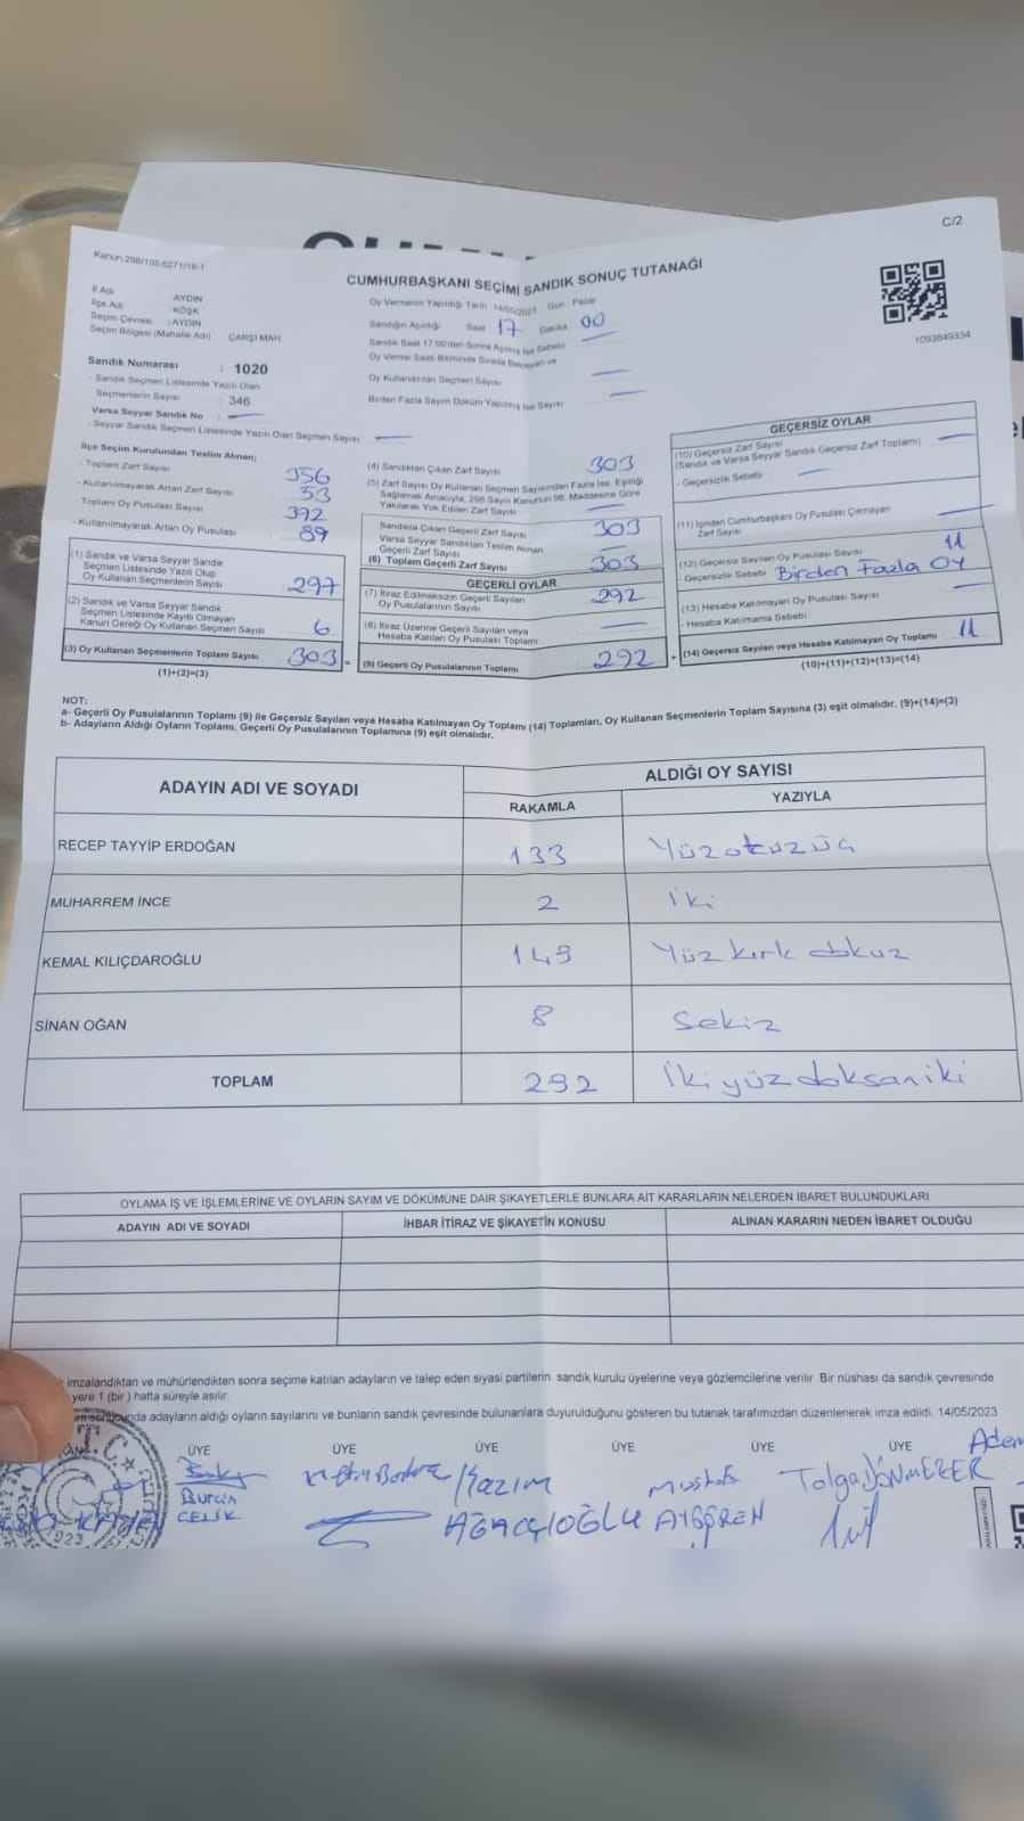 C/2
CUMHURBAŞKANI SEÇİMİ SANDIK SONUÇ TUTANAĞI
İl Adı AYDIN
İlçe Adı KÖŞK
Seçim Çevresi : AYDIN
Seçim Bölgesi (Mahalle Adı) ÇARŞI MAH
Oy Vermenin Yapıldığı Tarih 14/05/2023 Gün Pazar
Sandığın Açıldığı Saat 17 Dakika 00
Sandık Numarası : 1020
Sandık Seçmen Listesinde Yazılı Olan
Seçmenlerin Sayısı 346
Varsa Seyyar Sandık No
Seyyar Sandık Seçmen Listesinde Yazılı Olan Seçmen Sayısı
Oy Kullandırılan Seçmen Sayısı
Birden Fazla Sayım Döküm Yapılmış İse Sayısı
İlçe Seçim Kurulundan Teslim Alınan;
- Toplam Zarf Sayısı 356
- Kullanılmayarak Artan Zarf Sayısı 53
- Toplam Oy Pusulası Sayısı 392
- Kullanılmayarak Artan Oy Pusulası 89
(1) Sandık ve Varsa Seyyar Sandık
Seçmen Listesinde Yazılı Olup
Oy Kullanan Seçmenlerin Sayısı 297
(2) Sandık ve Varsa Seyyar Sandık
Seçmen Listesinde Kayıtlı Olmayan
Kanun Gereği Oy Kullanan Seçmen Sayısı 6
(3) Oy Kullanan Seçmenlerin Toplam Sayısı 303
(1)+(2)=(3)
(4) Sandıktan Çıkan Zarf Sayısı 303
(5) Zarf Sayısı Oy Kullanan Seçmen Sayısından Fazla İse, Eşitliği
Sağlamak Amacıyla, 298 Sayılı Kanunun 98. Maddesine Göre
Yakılarak Yok Edilen Zarf Sayısı
Sandıkta Çıkan Geçerli Zarf Sayısı 303
Varsa Seyyar Sandıktan Teslim Alınan
Geçerli Zarf Sayısı
(6) Toplam Geçerli Zarf Sayısı 303
GEÇERLİ OYLAR
(7) İtiraz Edilmeksizin Geçerli Sayılan
Oy Pusulalarının Sayısı 292
(8) İtiraz Üzerine Geçerli Sayılan veya
Hesaba Katılan Oy Pusulası Toplamı
(9) Geçerli Oy Pusulalarının Toplamı 292
GEÇERSİZ OYLAR
(10) Geçersiz Zarf Sayısı
(Sandık ve Varsa Seyyar Sandık Geçersiz Zarf Toplamı)
- Geçersizlik Sebebi
(11) İçinden Cumhurbaşkanı Oy Pusulası Çıkmayan
Zarf Sayısı
(12) Geçersiz Sayılan Oy Pusulası Sayısı 11
Geçersizlik Sebebi Birden Fazla Oy
(13) Hesaba Katılmayan Oy Pusulası Sayısı
- Hesaba Katılmama Sebebi
(14) Geçersiz Sayılan veya Hesaba Katılmayan Oy Toplamı 11
(10)+(11)+(12)+(13)=(14)
NOT:
a- Geçerli Oy Pusulalarının Toplamı (9) ile Geçersiz Sayılan veya Hesaba Katılmayan Oy Toplamı (14) Toplamları, Oy Kullanan Seçmenlerin Toplam Sayısına (3) eşit olmalıdır. (9)+(14)=(3)
b- Adayların Aldığı Oyların Toplamı, Geçerli Oy Pusulalarının Toplamına (9) eşit olmalıdır.
ADAYIN ADI VE SOYADI ALDIĞI OY SAYISI
RAKAMLA YAZIYLA
RECEP TAYYİP ERDOĞAN 133 Yüzotuzüç
MUHARREM İNCE 2 İki
KEMAL KILIÇDAROĞLU 149 Yüz kırk dokuz
SİNAN OĞAN 8 Sekiz
TOPLAM 292 İki yüz doksan iki
OYLAMA İŞ VE İŞLEMLERİNE VE OYLARIN SAYIM VE DÖKÜMÜNE DAİR ŞİKAYETLERLE BUNLARA AİT KARARLARIN NELERDEN İBARET BULUNDUKLARI
ADAYIN ADI VE SOYADI İHBAR İTİRAZ VE ŞİKAYETİN KONUSU ALINAN KARARIN NEDEN İBARET OLDUĞU
imzalandıktan ve mühürlendikten sonra seçime katılan adayların ve talep eden siyasi partilerin sandık kurulu üyelerine veya gözlemcilerine verilir. Bir nüshası da sandık çevresinde
yere 1 (bir) hafta süreyle asılır.
adayların aldığı oyların sayılarını ve bunların sandık çevresinde bulunanlara duyurulduğunu gösteren bu tutanak tarafımızdan düzenlenerek imza edildi. 14/05/2023
ÜYE ÜYE ÜYE ÜYE ÜYE ÜYE Adem
Burcin Kazım Mustafa Tolga DÖNMEZER
ÇELİK AĞAÇÇIOĞLU
T.C.